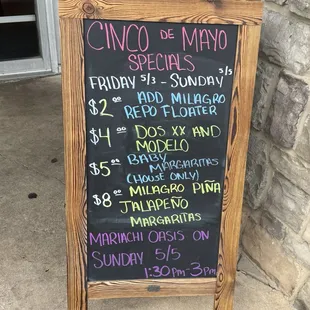 CINCO DE MAYO
SPECIALS
FRIDAY 5/3 - SUNDAY 5/5
$2.00 ADD MILAGRO
REPO FLOATER
$4.00 DOS XX AND
MODELO
$5.00 BABY
MARGARITAS
(HOUSE ONLY)
$8.00 MILAGRO PIÑA
JALAPEÑO
MARGARITAS
MARIACHI OASIS ON
SUNDAY 5/5
1:30PM-3PM